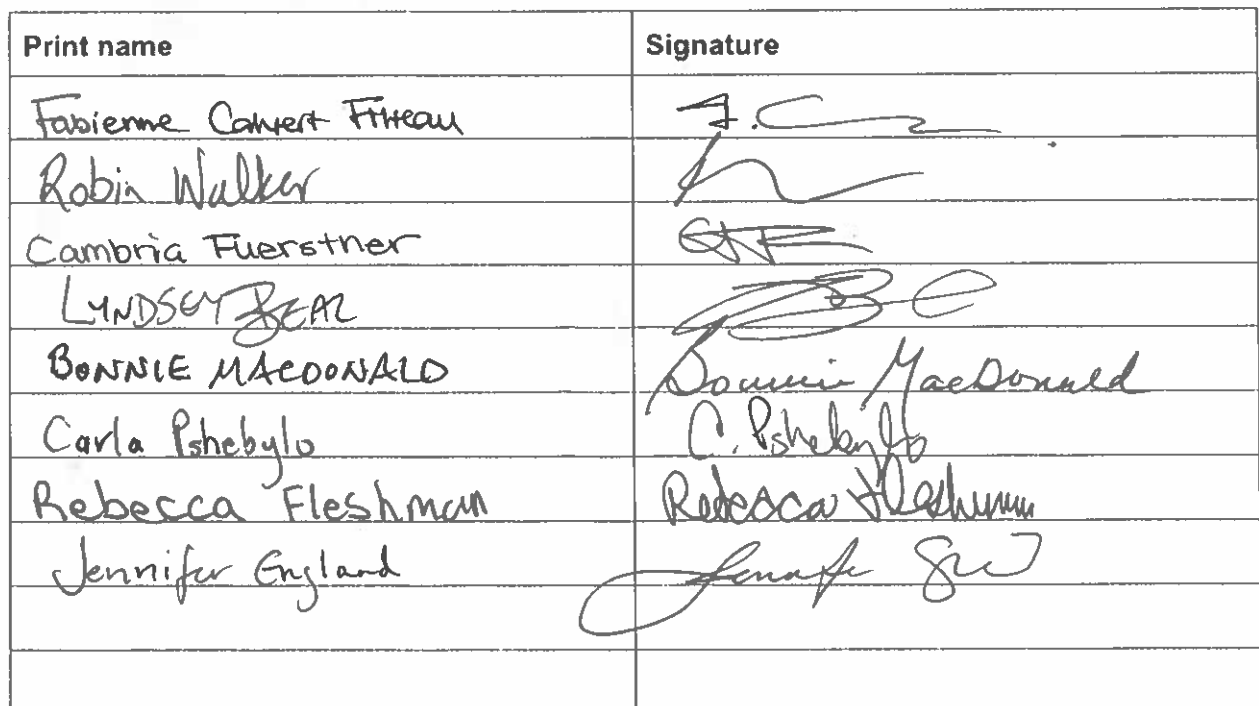 Print name Signature
Fabienne Calvert Filteau F. C
Robin Walker
Cambria Fuerstner
LYNDSEY BEAL B
BONNIE MACDONALD Bonnie MacDonald
Carla Pshebylo C. Pshebylo
Rebecca Fleshman Rebecca Fleshman
Jennifer England Jennifer